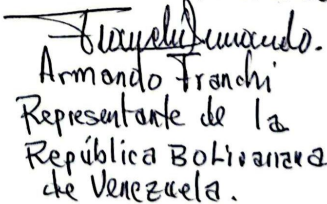 Armando Franchi
Representante de la
República Bolivariana
de Venezuela.